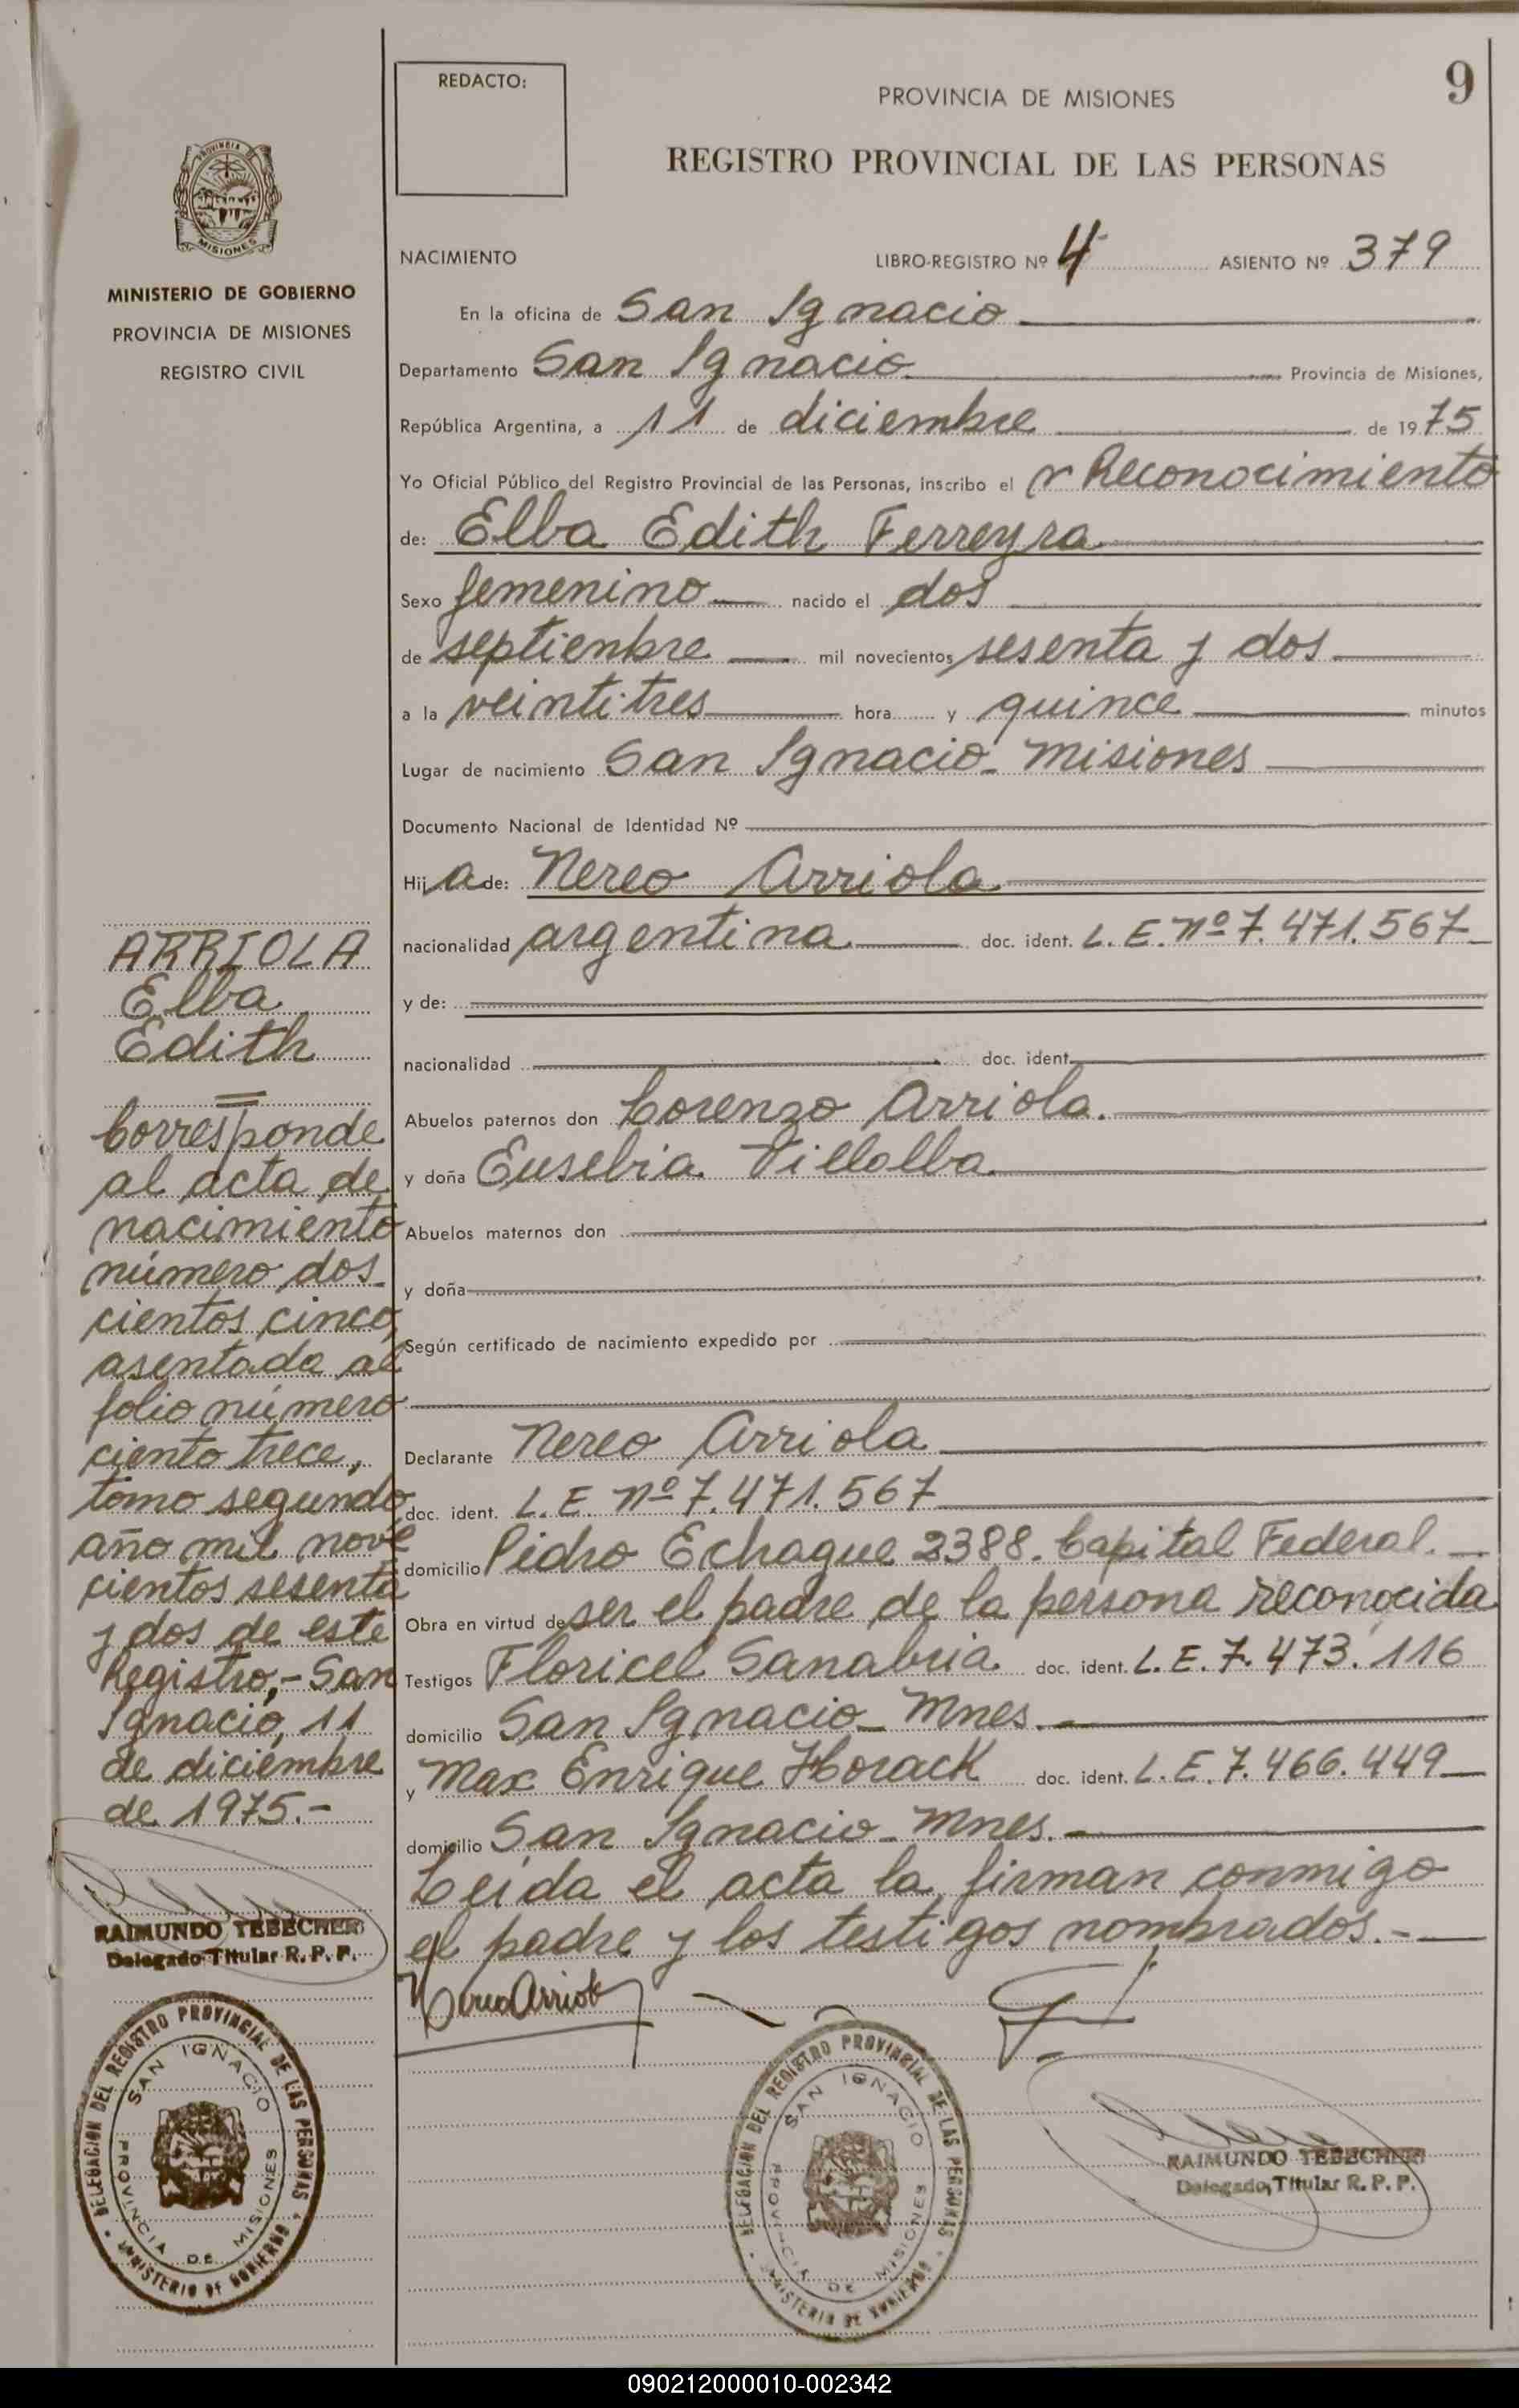 REDACTO:
9
PROVINCIA DE MISIONES
REGISTRO PROVINCIAL DE LAS PERSONAS
PROVINCIA DE
MISIONES
MINISTERIO DE GOBIERNO
PROVINCIA DE MISIONES
REGISTRO CIVIL
NACIMIENTO LIBRO-REGISTRO Nº 4 ASIENTO Nº 379
En la oficina de San Ignacio
Departamento San Ignacio Provincia de Misiones,
República Argentina, a 11 de diciembre de 1975
Yo Oficial Público del Registro Provincial de las Personas, inscribo el Reconocimiento
de: Elba Edith Ferreyra
Sexo femenino nacido el dos
de septiembre mil novecientos sesenta y dos
a la veintitres hora y quince minutos
Lugar de nacimiento San Ignacio - Misiones
Documento Nacional de Identidad Nº
Hija de: Nereo Arriola
nacionalidad argentina doc. ident. L.E. nº 7.471.567
y de:
nacionalidad doc. ident.
Abuelos paternos don Lorenzo Arriola.
y doña Eusebia Villalba
Abuelos maternos don
y doña
Según certificado de nacimiento expedido por
Declarante Nereo Arriola
doc. ident. L.E. nº 7.471.567
domicilio Pedro Echague 2388. Capital Federal.
Obra en virtud de ser el padre de la persona reconocida
Testigos Floricel Sanabria doc. ident. L.E. 7.473.116
domicilio San Ignacio - Mnes.
y Max Enrique Horack doc. ident. L.E. 7.466.449
domicilio San Ignacio - Mnes.-
Leida el acta la firman conmigo
el padre y los testigos nombrados.-
Nereo Arriola
DELEGACION DEL REGISTRO PROVINCIAL DE LAS PERSONAS
SAN IGNACIO
PROVINCIA DE MISIONES
MINISTERIO DE GOBIERNO
RAIMUNDO TEBECHERI
Delegado Titular R. P. P.
ARRIOLA
Elba
Edith
Corresponde
al acta de
nacimiento
número dos-
cientos cinco,
asentada al
folio número
ciento trece,
tomo segundo
año mil nove
cientos sesenta
y dos de este
Registro,- San
Ignacio, 11
de diciembre
de 1975.-
RAIMUNDO TEBECHERI
Delegado Titular R. P. P.
DELEGACION DEL REGISTRO PROVINCIAL DE LAS PERSONAS
SAN IGNACIO
PROVINCIA DE MISIONES
MINISTERIO DE GOBIERNO
090212000010-002342